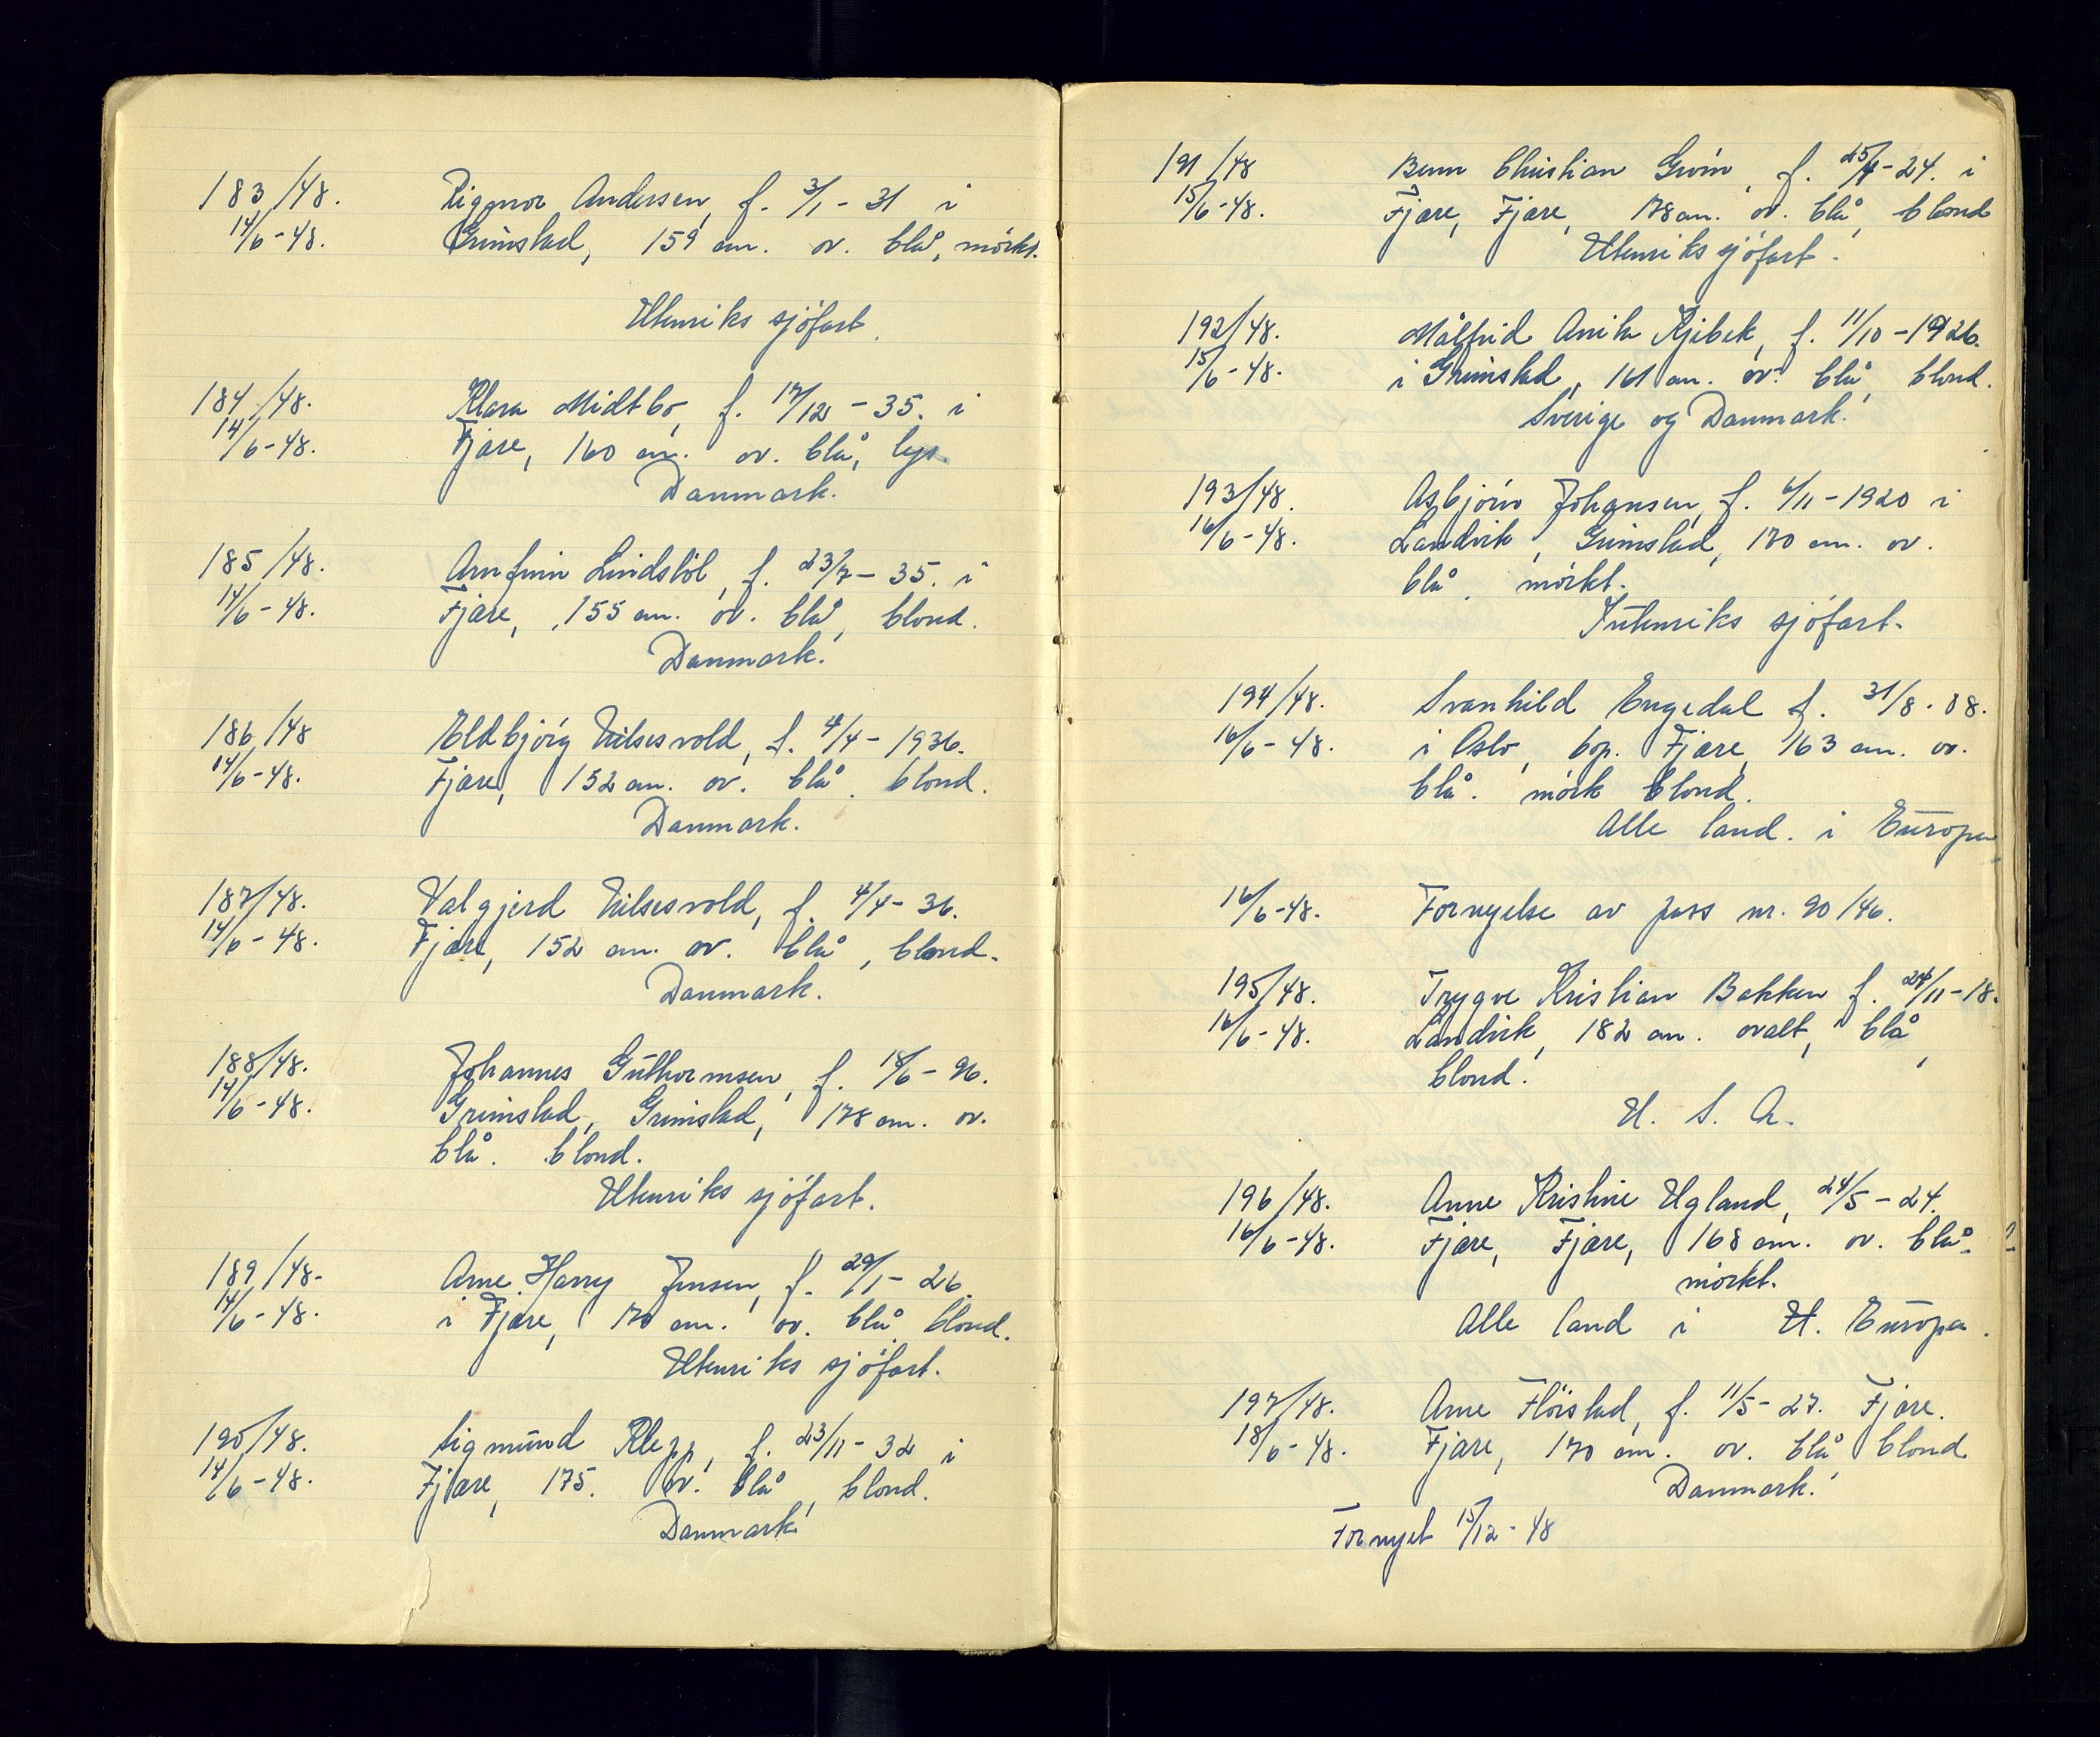 183/48. Rigmor Andersen, f. 3/1 - 31 i
14/6-48. Grimstad, 159 cm. ov. blå, mörkt.
Utenriks sjöfart.
184/48. Klara Midtbö, f. 17/12 - 35. i
14/6-48. Fjære, 160 cm. ov. blå, lys.
Danmark.
185/48. Arnfinn Lindstöl, f. 23/7 - 35. i
14/6-48. Fjære, 155 cm. ov. blå, blond.
Danmark.
186/48 Eldbjörg f. 4/4 - 1936.
14/6-48. Fjære, 152 cm. ov. blå. blond.
Danmark.
187/48. Valgjerd f. 4/4 - 36.
14/6-48. Fjære, 152 cm. ov. blå, blond.
Danmark.
188/48. Johannes Guthormsen, f. 18/6 - 96.
14/6-48. Grimstad, Grimstad, 178 cm. ov.
blå. blond.
Utenriks sjöfart.
189/48. Arne Harry Jensen, f. 29/1 - 26.
14/6-48. i Fjære, 170 cm. ov. blå, blond.
Utenriks sjöfart.
190/48. Sigmund Klepp, f. 23/11 - 32 i
14/6-48. Fjære, 175. ov. blå, blond.
Danmark.
191/48 Christian f. 25/4 - 24. i
15/6-48. Fjære, Fjære, 178 cm. ov. blå, blond
Utenriks sjöfart.
192/48. Målfrid Anita f. 11/10 - 1926.
15/6-48. i Grimstad, 161 cm. ov. blå, blond.
Sverige og Danmark.
193/48. Asbjörn Johansen, f. 6/11 - 1920 i
16/6-48. Landvik, Grimstad, 170 cm. ov.
blå, mörkt.
Inenriks sjöfart.
194/48. Svanhild Engedal f. 31/8 - 08.
16/6-48. i Oslo, bop. Fjære, 163 cm. ov.
blå. mörk blond.
Alle land. i Europa
16/6-48. Fornyelse av pass nr. 90/46.
195/48. Trygve Kristian Bakken f. 24/11 - 18.
16/6-48. Landvik, 182 cm. ovalt, blå,
blond.
U. S. A.
196/48. Anne Kristine Ugland, 24/5 - 24.
16/6-48. Fjære, Fjære, 168 cm. ov. blå.
mörkt.
Alle land i U. Europa.
197/48. Arne Flörstad, f. 11/5 - 27. Fjære.
18/6-48. Fjære, 170 cm. ov. blå, blond
Danmark.
Fornyet 15/12 - 48